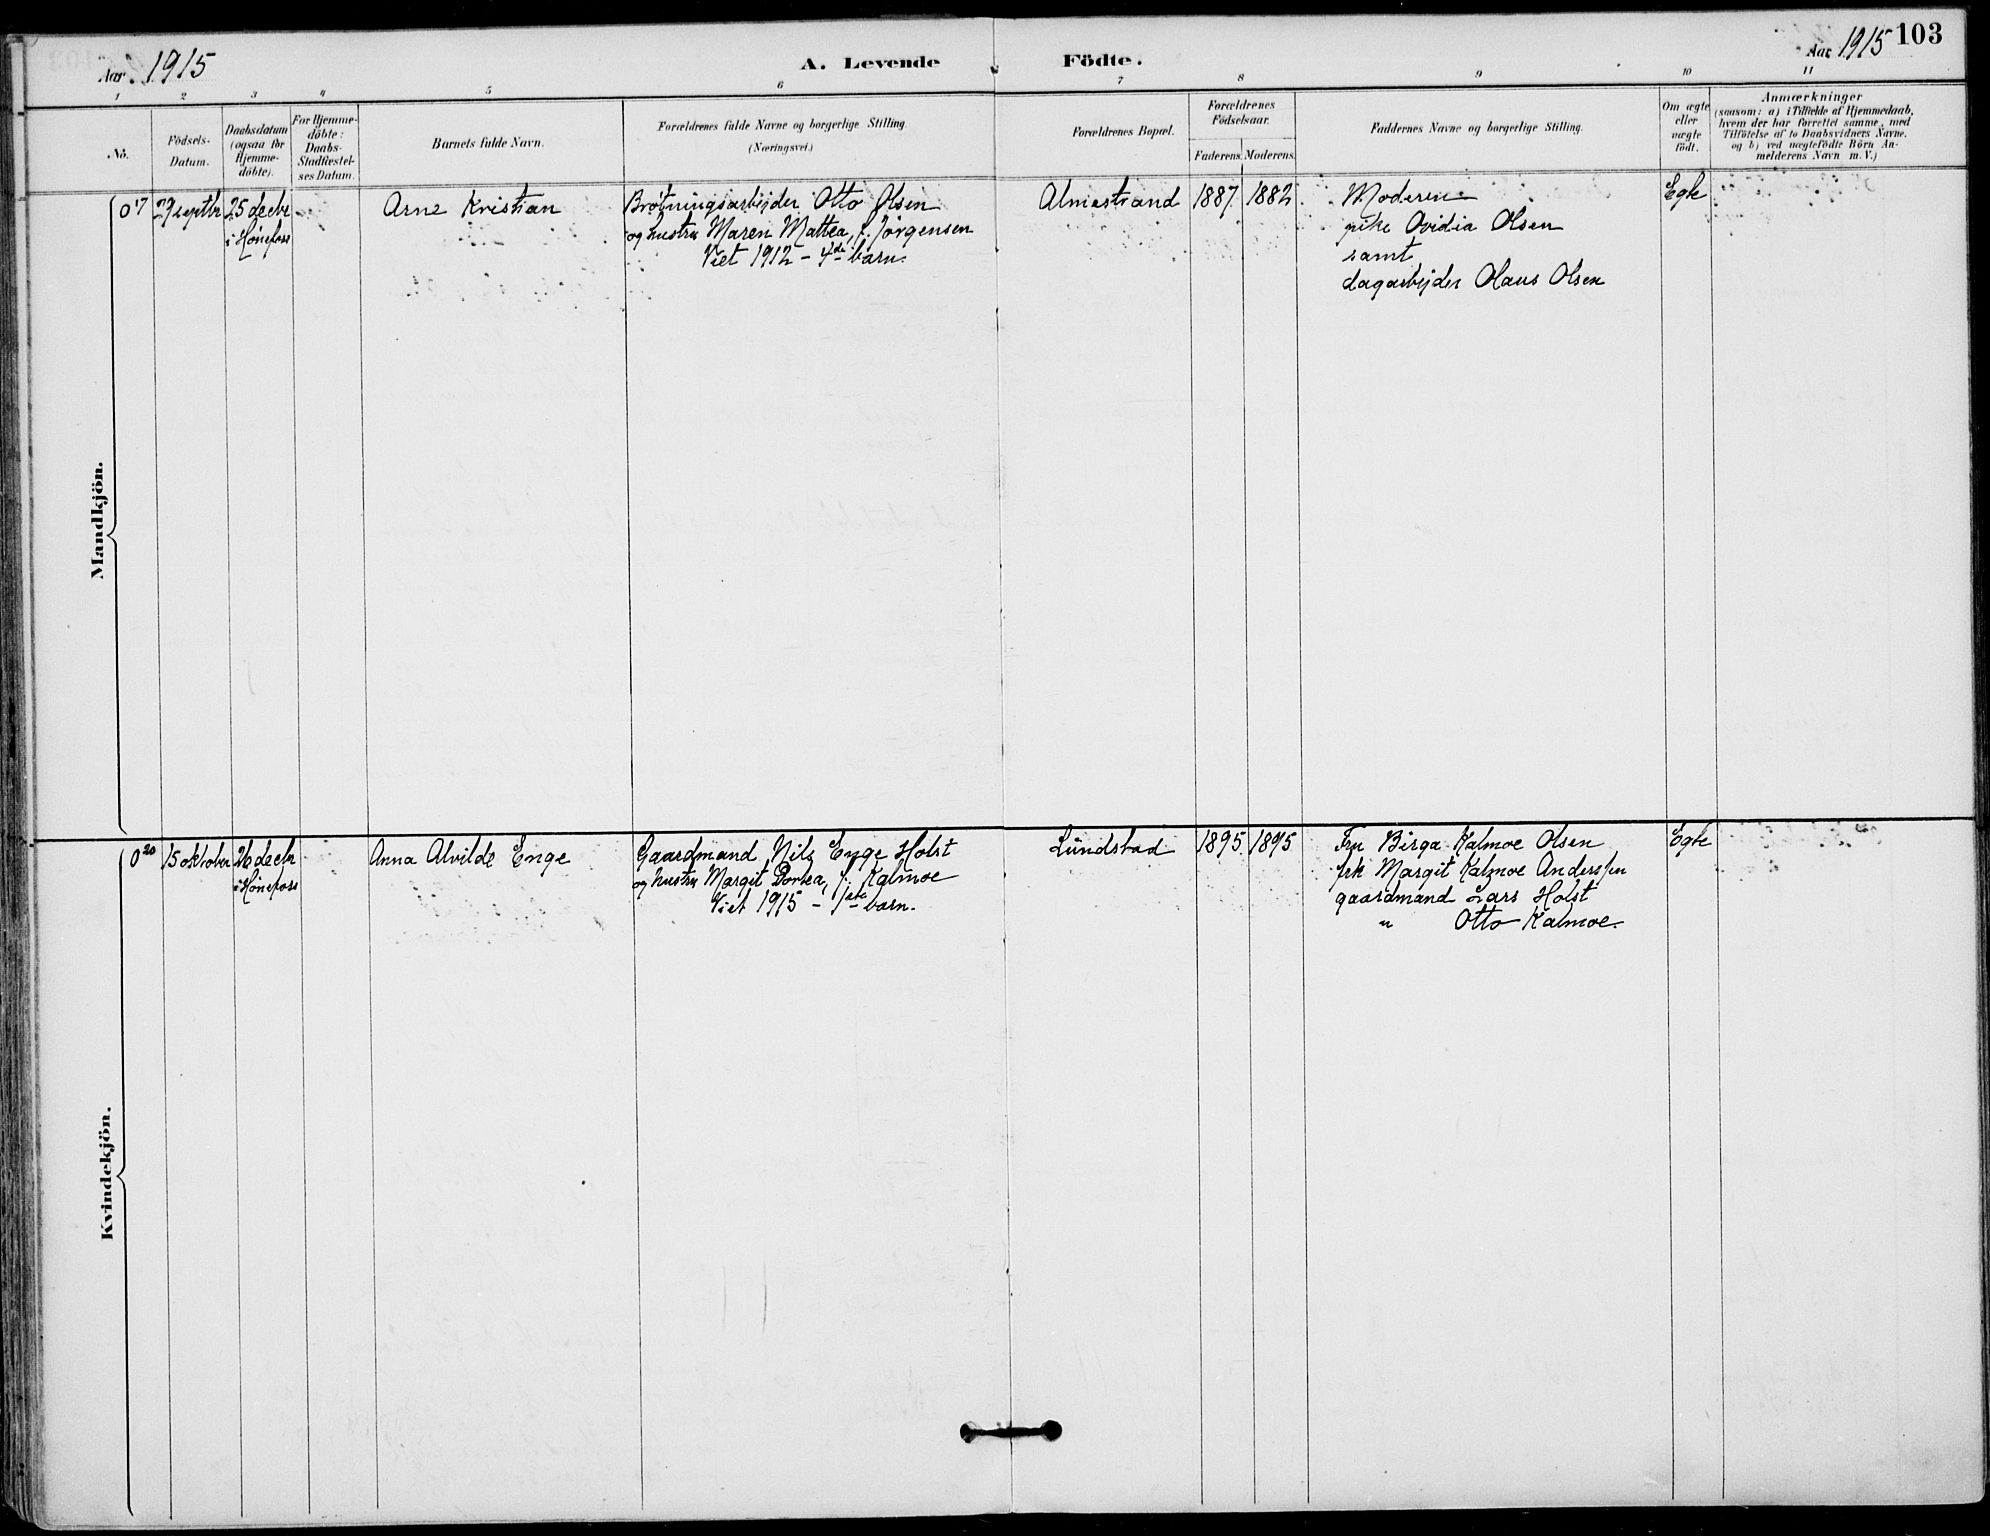 Aar 1915
A. Levende Födte.
Aar 1915
103
1 2 3 4 5 6 7 8 9 10 11
No.
Födsels-
Datum.
Daabsdatum
(ogsaa for
Hjemme-
döbte).
For Hjemme-
döbte:
Daabs-
Stadfæstel-
ses Datum.
Barnets fulde Navn.
Forældrenes fulde Navne og borgerlige Stilling.
(Næringsvei.)
Forældrenes Bopæl.
Forældrenes
Födselsaar.
Faderens. Moderens.
Faddernes Navne og borgerlige Stilling.
Om ægte
eller
uægte
födt.
Anmærkninger
(saasom: a) i Tilfælde af Hjemmedaab,
hvem der har forrettet samme, med
Tilföielse af to Daabsvidners Navne,
og b) ved uægtefödte Börn An-
melderens Navn m. V.)
Mandkjön.
017
septbr
25 decbr
i Hönefoss
Arne Kristian
Brötningsarbeider Otto Olsen
og hustru Maren Mattea, f. Jörgensen
Viet 1912 - 4de barn.
Almestrand
1887 1882
Moderen
pike Ovidia Olsen
samt
dagarbeider Olaus Olsen
Egte
Kvindekjön.
020
15 oktober
26 decbr
i Hönefoss
Anna Alvilde Enge
Gaardmand Nils Enge Holst
og hustru Margit Dortea, f. Kalmoe
Viet 1915 - 1ste barn.
Lundstad
1895 1895
Fru Birga Kalmoe Olsen
frk Margit Kalmoe Anderssen
gaardmand Lars Holst
" Otto Kalmoe.
Egte